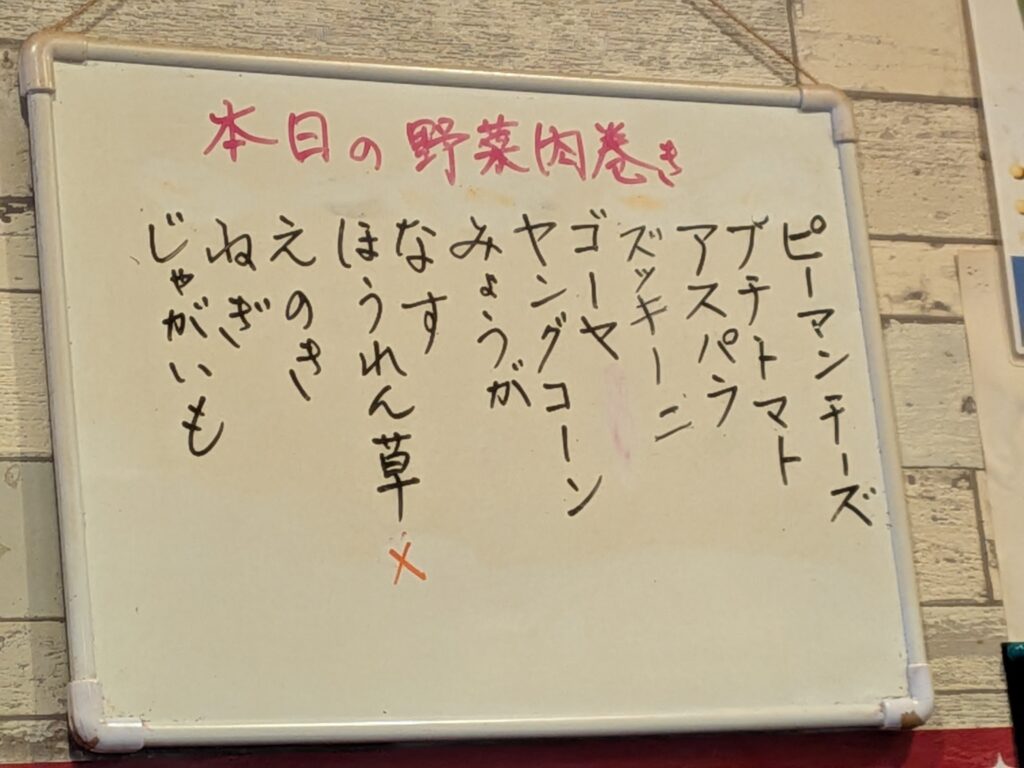 本日の野菜肉巻き
ピーマンチーズ
プチトマト
アスパラ
ズッキーニ
ゴーヤ
ヤングコーン
みょうが
なす
ほうれん草 ×
えのき
ねぎ
じゃがいも